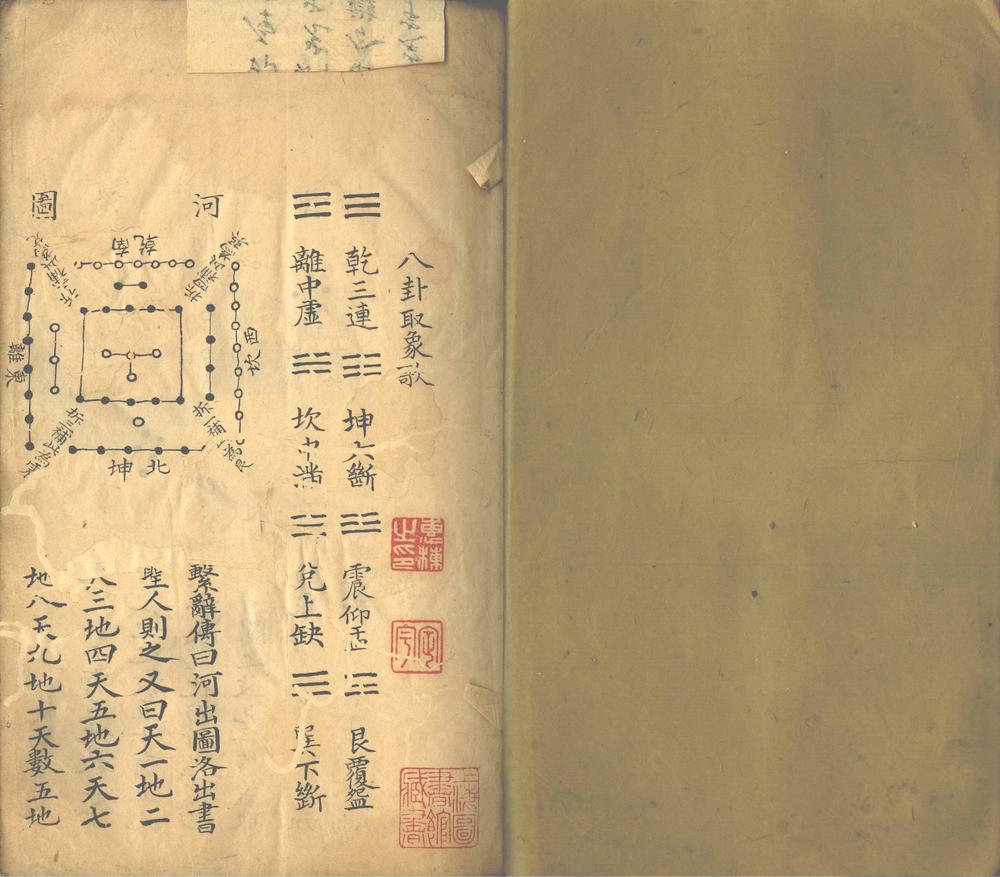 八卦取象歌
☰ 乾三連 ☷ 坤六斷 ☳ 震仰盂 ☶ 艮覆盌
☲ 離中虛 ☵ 坎中滿 ☱ 兌上缺 ☴ 巽下斷
河圖
乾南
西坎
離東
坤北
繫辭傳曰河出圖洛出書
聖人則之又曰天一地二
天三地四天五地六天七
地八天九地十天數五地
惠棟之印
定宇
上海圖書館藏書